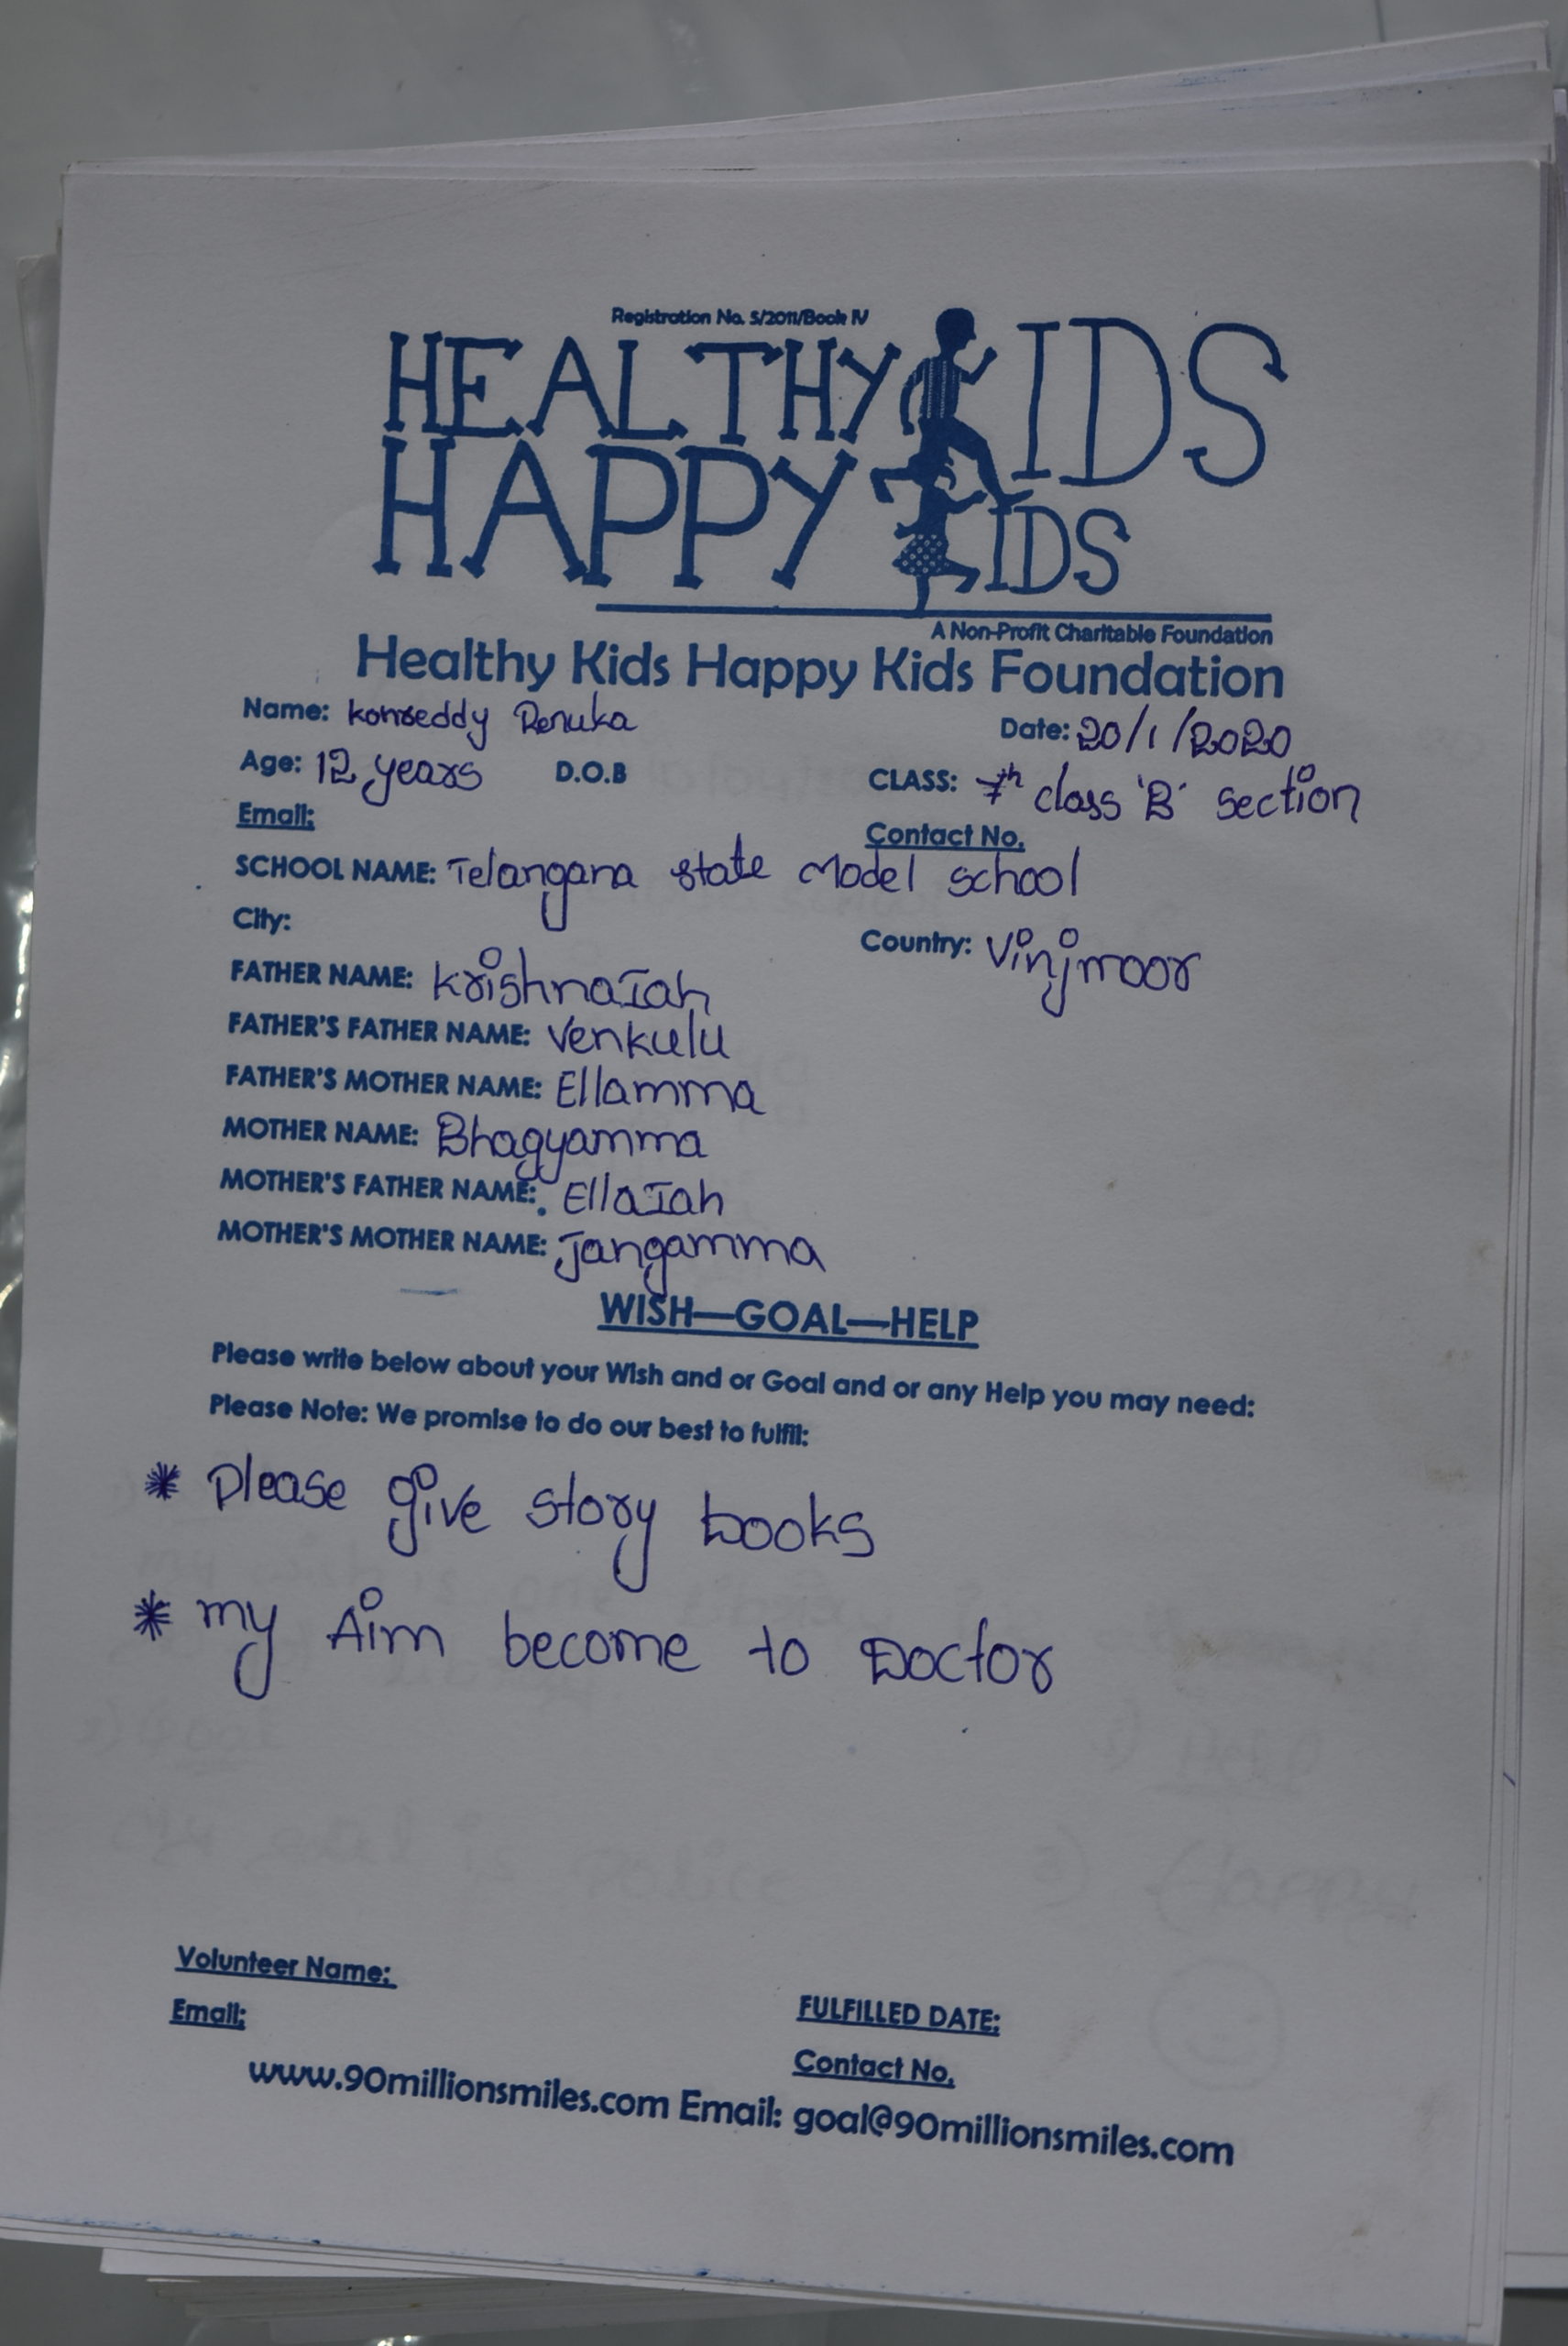 Registration No. 5/2011/Book IV
HEALTHY KIDS
HAPPY KIDS
A Non-Profit Charitable Foundation
Healthy Kids Happy Kids Foundation
Name: Konreddy Renuka Date: 20/1/2020
Age: 12 years D.O.B CLASS: 7th class 'B' section
Email: Contact No.
SCHOOL NAME: Telangana state Model school
City: Country: Vinjmoor
FATHER NAME: KrishnaIah
FATHER'S FATHER NAME: Venkulu
FATHER'S MOTHER NAME: Ellamma
MOTHER NAME: Bhagyamma
MOTHER'S FATHER NAME: EllaIah
MOTHER'S MOTHER NAME: Jangamma
WISH—GOAL—HELP
Please write below about your Wish and or Goal and or any Help you may need:
Please Note: We promise to do our best to fulfil:
* Please give story books
* my Aim become to Doctor
Volunteer Name: FULFILLED DATE:
Email: Contact No.
www.90millionsmiles.com Email: goal@90millionsmiles.com